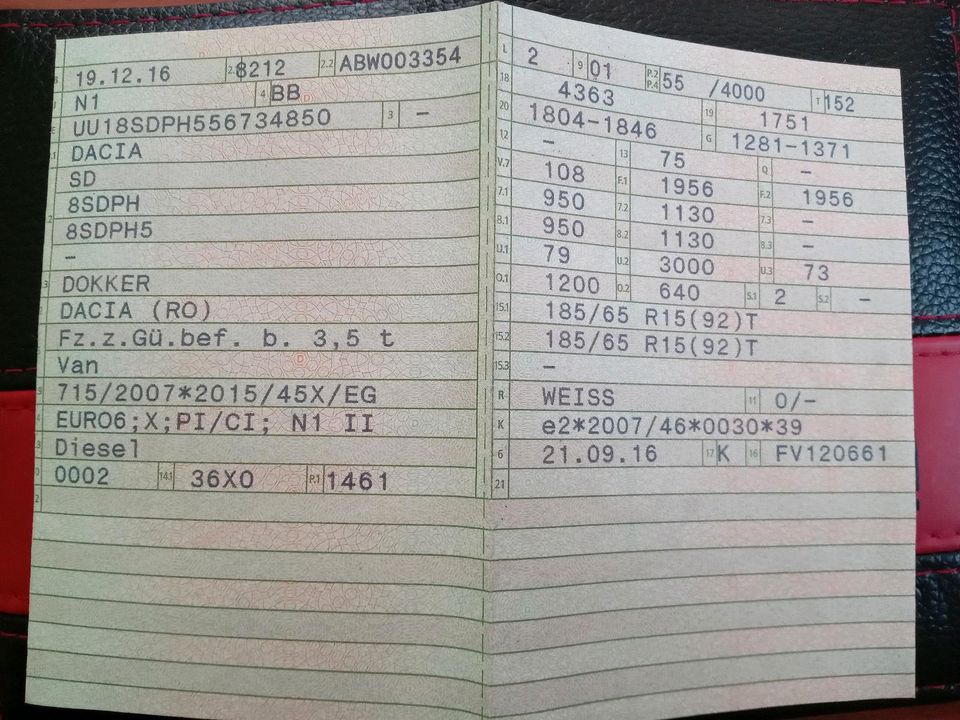 B 19.12.16 2.1 8212 2.2 ABW003354
J N1 4 BB
E UU18SDPH556734850 3 –
D.1 DACIA
SD
8SDPH
8SDPH5
–
DOKKER
DACIA (RO)
Fz.z.Gü.bef. b. 3,5 t
Van
715/2007*2015/45X/EG
EURO6;X;PI/CI; N1 II
Diesel
0002 14.1 36X0 P.1 1461
L 2 9 01 P.2 P.4 55 /4000 T 152
18 4363 19 1751
20 1804-1846 G 1281-1371
12 – 13 75 Q –
V.7 108 F.1 1956 F.2 1956
7.1 950 7.2 1130 7.3 –
8.1 950 8.2 1130 8.3 –
U.1 79 U.2 3000 U.3 73
O.1 1200 O.2 640 S.1 2 S.2 –
15.1 185/65 R15(92)T
15.2 185/65 R15(92)T
15.3 –
R WEISS 11 0/–
K e2*2007/46*0030*39
6 21.09.16 17 K 16 FV120661
21